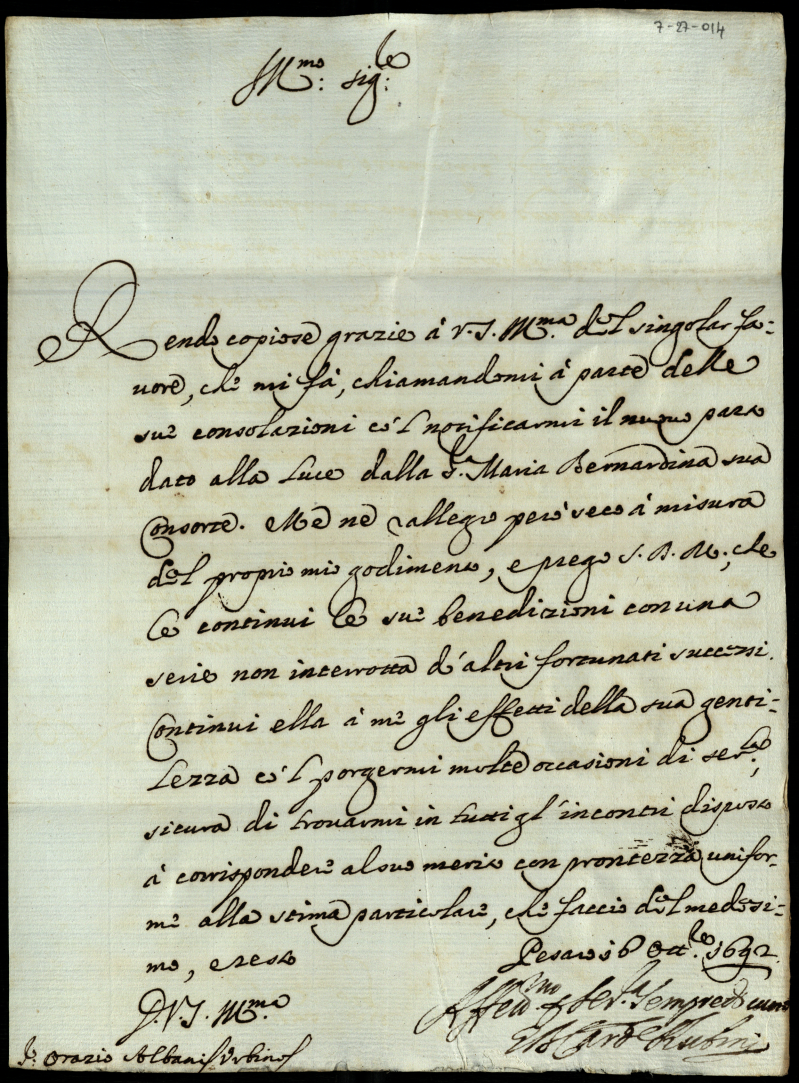 7-27-014
Ill.mo Sig.re
Rendo copiose grazie à V. S. Ill.ma del singolar fa-
uore, che mi fà, chiamandomi à parte delle
sue consolazioni co'l notificarmi il nuouo parto
dato alla luce dalla S.ra Maria Bernardina sua
Consorte. Me ne rallegro però seco à misura
del proprio mio godimento, e prego S. D. M., che
le continui le sue benedizioni con una
serie non interrotta d'altri fortunati successi.
Continui ella à me gli effetti della sua genti-
lezza co'l porgermi molte occasioni di ser.la,
sicura di trouarmi in tutti gl'incontri disposto
à corrispondere al suo merito con prontezza unifor-
me alla stima particolare, che faccio del medesi-
mo, e resto
Pesaro 16 Ott.re 1692
D. V. S. Ill.ma
Affett.mo per Ser.la sempre di cuore
Il Card.
S.r Orazio Albani Urbino